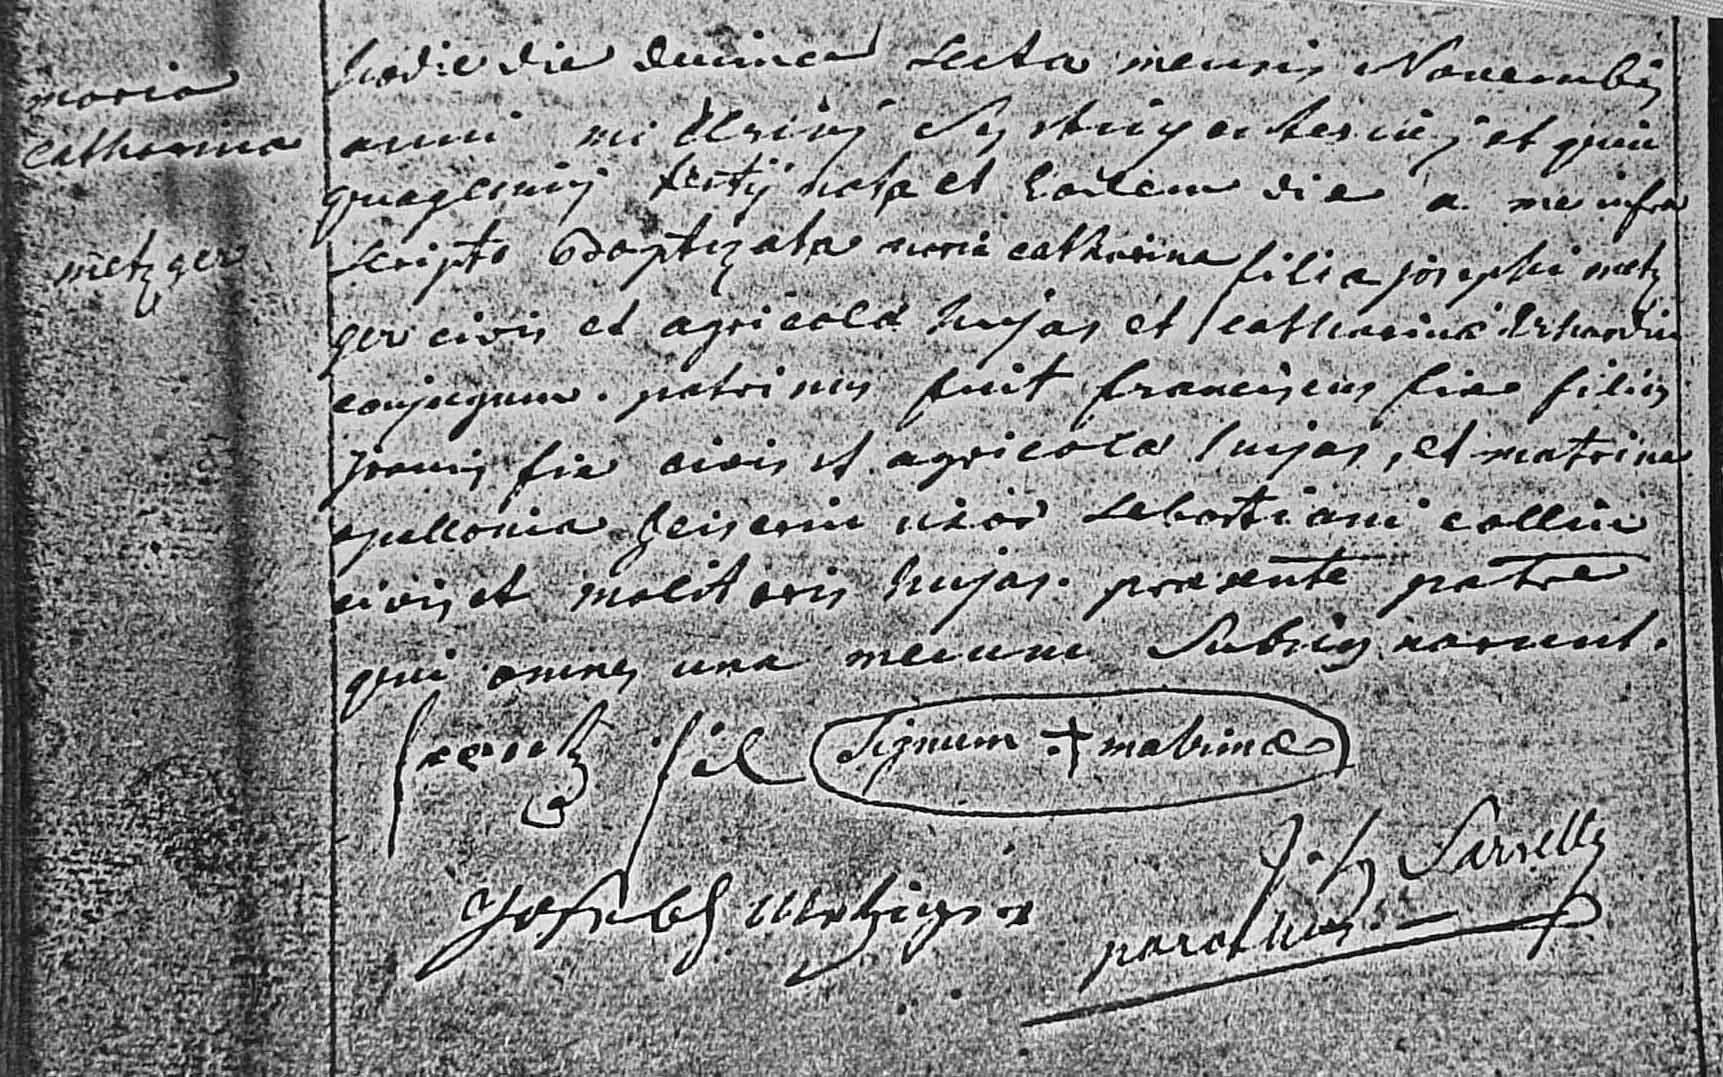 maria
catharina
metzger
hodie die decima sexta mensis Novembris
anni millesimi Septingentesimi et quin
quagesimi sextij nata et eodem die a me infra
scripto Baptizata maria catharina filia josephi metz
ger civis et agricolæ hujas et catharinæ Erhardin
conjugum. patrinus fuit franciscus fix filius
joannis fix civis et agricolæ hujas, et matrina
apollonia Zeiserin uxor sebastiani collin
civis et molitoris hujas. præsente patre
qui omnes una mecum Subsignarunt.
frantz
Signum + matrinæ
Joseph metziger
parochus.